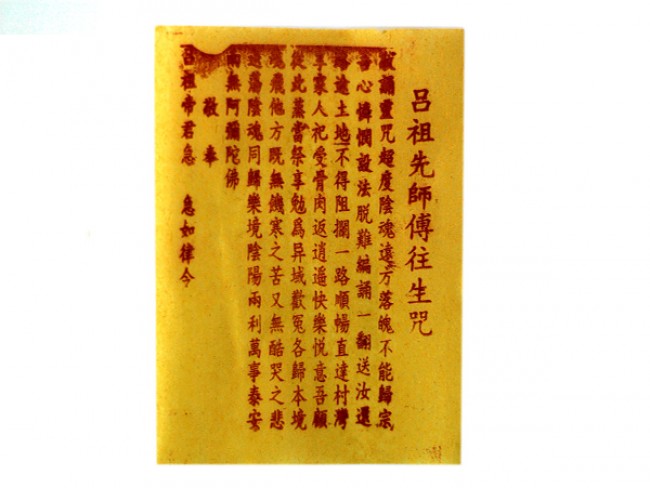 呂祖先師傅往生咒
敬誦靈咒超度陰魂遠方落魄不能歸宗
吾心憐憫設法脫難編誦一翻送汝還
路途土地不得阻攔一路順暢直達村灣
享家人祀受骨肉返逍遥快樂悅意吾願
從此蒸嘗祭享勉爲异域歡冤各歸本境
魂飛他方既無饑寒之苦又無酷哭之悲
遊蕩陰魂同歸樂境陰陽兩利萬事泰安
南無阿彌陀佛
敬奉
呂祖帝君急 急如律令